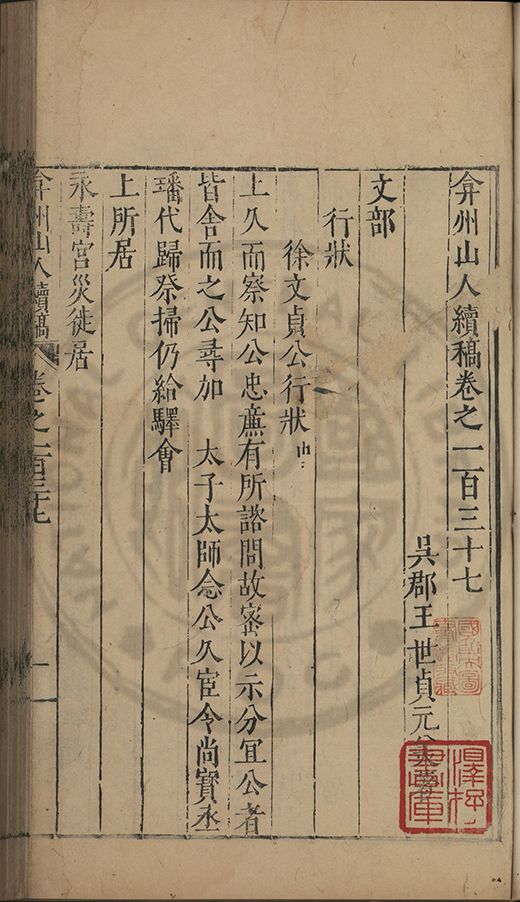 弇州山人續稿卷之一百三十七
吳郡王世貞元美著
文部
行狀
徐文貞公行狀中
上久而察知公忠廉有所諮問故密以示分宜公者
皆舍而之公尋加　太子太師念公久宦令尚寶丞
璠代歸祭掃仍給驛會
上所居
永壽宮災徙居
弇州山人續稿 卷之一百三十七 一